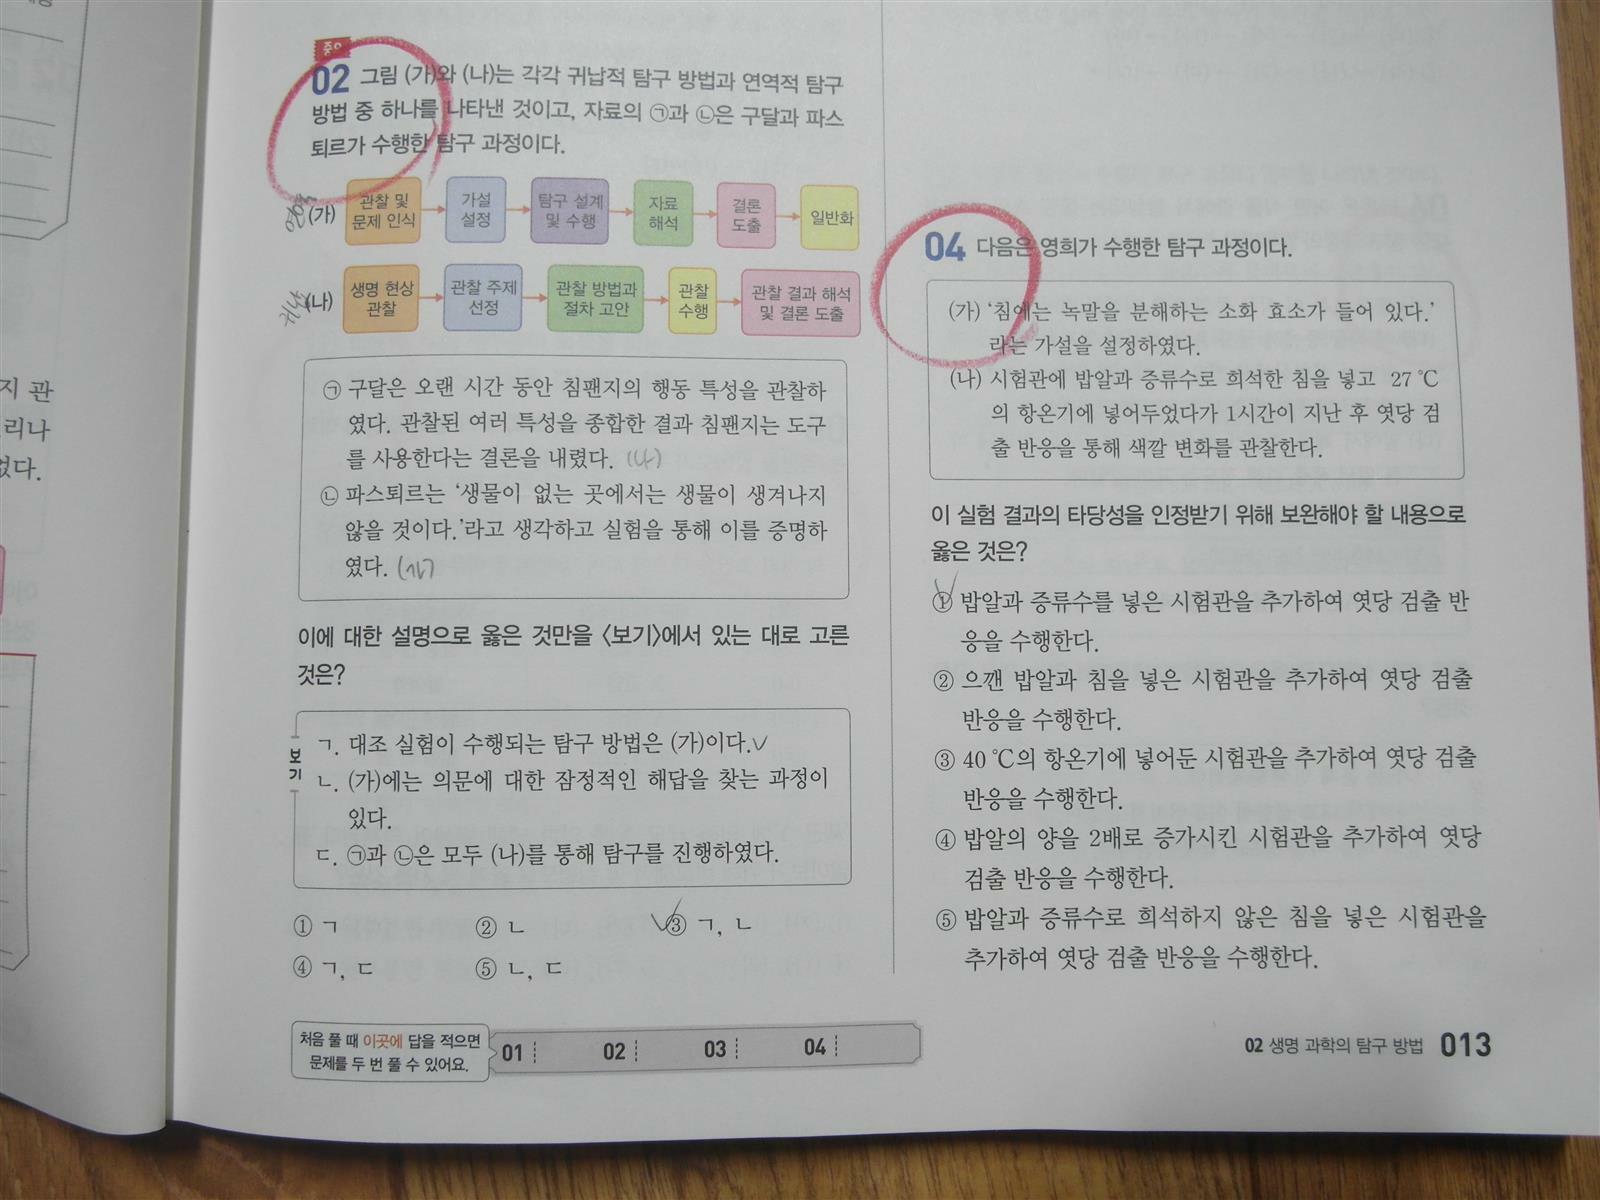 중요
02 그림 (가)와 (나)는 각각 귀납적 탐구 방법과 연역적 탐구
방법 중 하나를 나타낸 것이고, 자료의 ㉠과 ㉡은 구달과 파스
퇴르가 수행한 탐구 과정이다.
(가) 관찰 및 문제 인식 가설 설정 탐구 설계 및 수행 자료 해석 결론 도출 일반화
(나) 생명 현상 관찰 관찰 주제 선정 관찰 방법과 절차 고안 관찰 수행 관찰 결과 해석 및 결론 도출
㉠ 구달은 오랜 시간 동안 침팬지의 행동 특성을 관찰하
였다. 관찰된 여러 특성을 종합한 결과 침팬지는 도구
를 사용한다는 결론을 내렸다. (나)
㉡ 파스퇴르는 ‘생물이 없는 곳에서는 생물이 생겨나지
않을 것이다.’라고 생각하고 실험을 통해 이를 증명하
였다. (가)
이에 대한 설명으로 옳은 것만을 〈보기〉에서 있는 대로 고른
것은?
보기
ㄱ. 대조 실험이 수행되는 탐구 방법은 (가)이다.
ㄴ. (가)에는 의문에 대한 잠정적인 해답을 찾는 과정이
있다.
ㄷ. ㉠과 ㉡은 모두 (나)를 통해 탐구를 진행하였다.
① ㄱ ② ㄴ ③ ㄱ, ㄴ
④ ㄱ, ㄷ ⑤ ㄴ, ㄷ
04 다음은 영희가 수행한 탐구 과정이다.
(가) ‘침에는 녹말을 분해하는 소화 효소가 들어 있다.’
라는 가설을 설정하였다.
(나) 시험관에 밥알과 증류수로 희석한 침을 넣고 27 ℃
의 항온기에 넣어두었다가 1시간이 지난 후 엿당 검
출 반응을 통해 색깔 변화를 관찰한다.
이 실험 결과의 타당성을 인정받기 위해 보완해야 할 내용으로
옳은 것은?
① 밥알과 증류수를 넣은 시험관을 추가하여 엿당 검출 반
응을 수행한다.
② 으깬 밥알과 침을 넣은 시험관을 추가하여 엿당 검출
반응을 수행한다.
③ 40 ℃의 항온기에 넣어둔 시험관을 추가하여 엿당 검출
반응을 수행한다.
④ 밥알의 양을 2배로 증가시킨 시험관을 추가하여 엿당
검출 반응을 수행한다.
⑤ 밥알과 증류수로 희석하지 않은 침을 넣은 시험관을
추가하여 엿당 검출 반응을 수행한다.
처음 풀 때 이곳에 답을 적으면
문제를 두 번 풀 수 있어요.
01 02 03 04
02 생명 과학의 탐구 방법 013